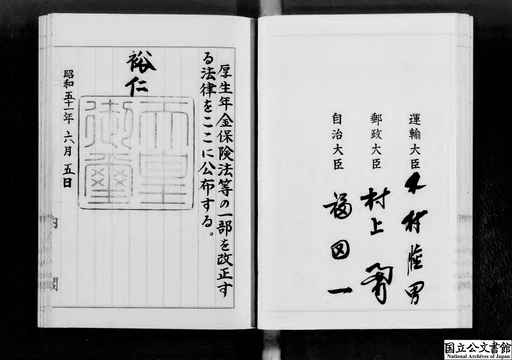 運輸大臣 木村睦男
郵政大臣 村上勇
自治大臣 福田一
厚生年金保険法等の一部を改正す
る法律をここに公布する。
裕仁
天皇
御璽
昭和五十一年 六月 五日
内閣
国立公文書館
National Archives of Japan